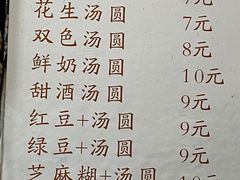 7元
花生汤圆 7元
双色汤圆 8元
鲜奶汤圆 10元
甜酒汤圆 9元
红豆+汤圆 9元
绿豆+汤圆 9元
芝麻糊+汤圆 10元